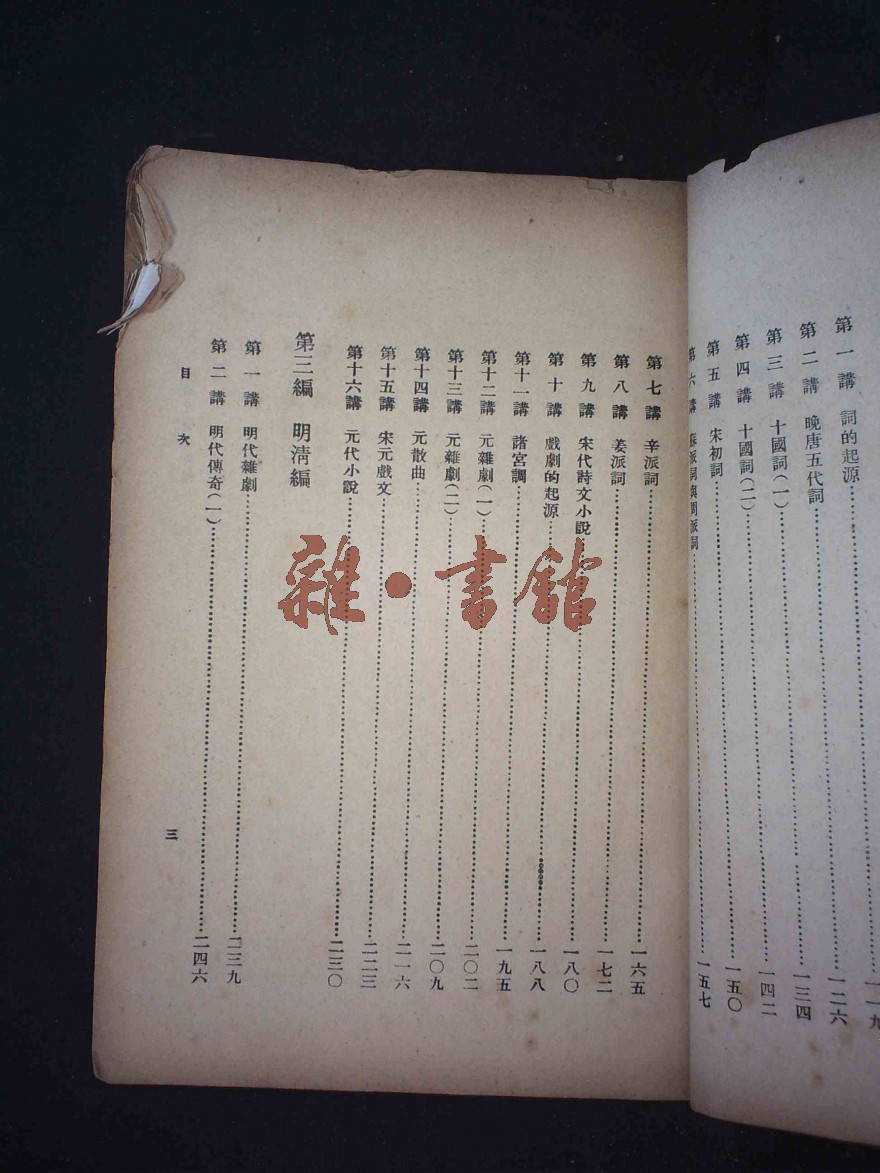 第一講　詞的起源……一一九
第二講　晚唐五代詞……一二六
第三講　十國詞（一）……一三四
第四講　十國詞（二）……一四二
第五講　宋初詞……一五〇
第六講　蘇派詞與周派詞……一五七
第七講　辛派詞……一六五
第八講　姜派詞……一七二
第九講　宋代詩文小說……一八〇
第十講　戲劇的起源……一八八
第十一講　諸宮調……一九五
第十二講　元雜劇（一）……二〇二
第十三講　元雜劇（二）……二〇九
第十四講　元散曲……二一六
第十五講　宋元戲文……二二三
第十六講　元代小說……二三〇
第三編　明清編
第一講　明代雜劇……二三九
第二講　明代傳奇（一）……二四六
目次
三
雜·書館